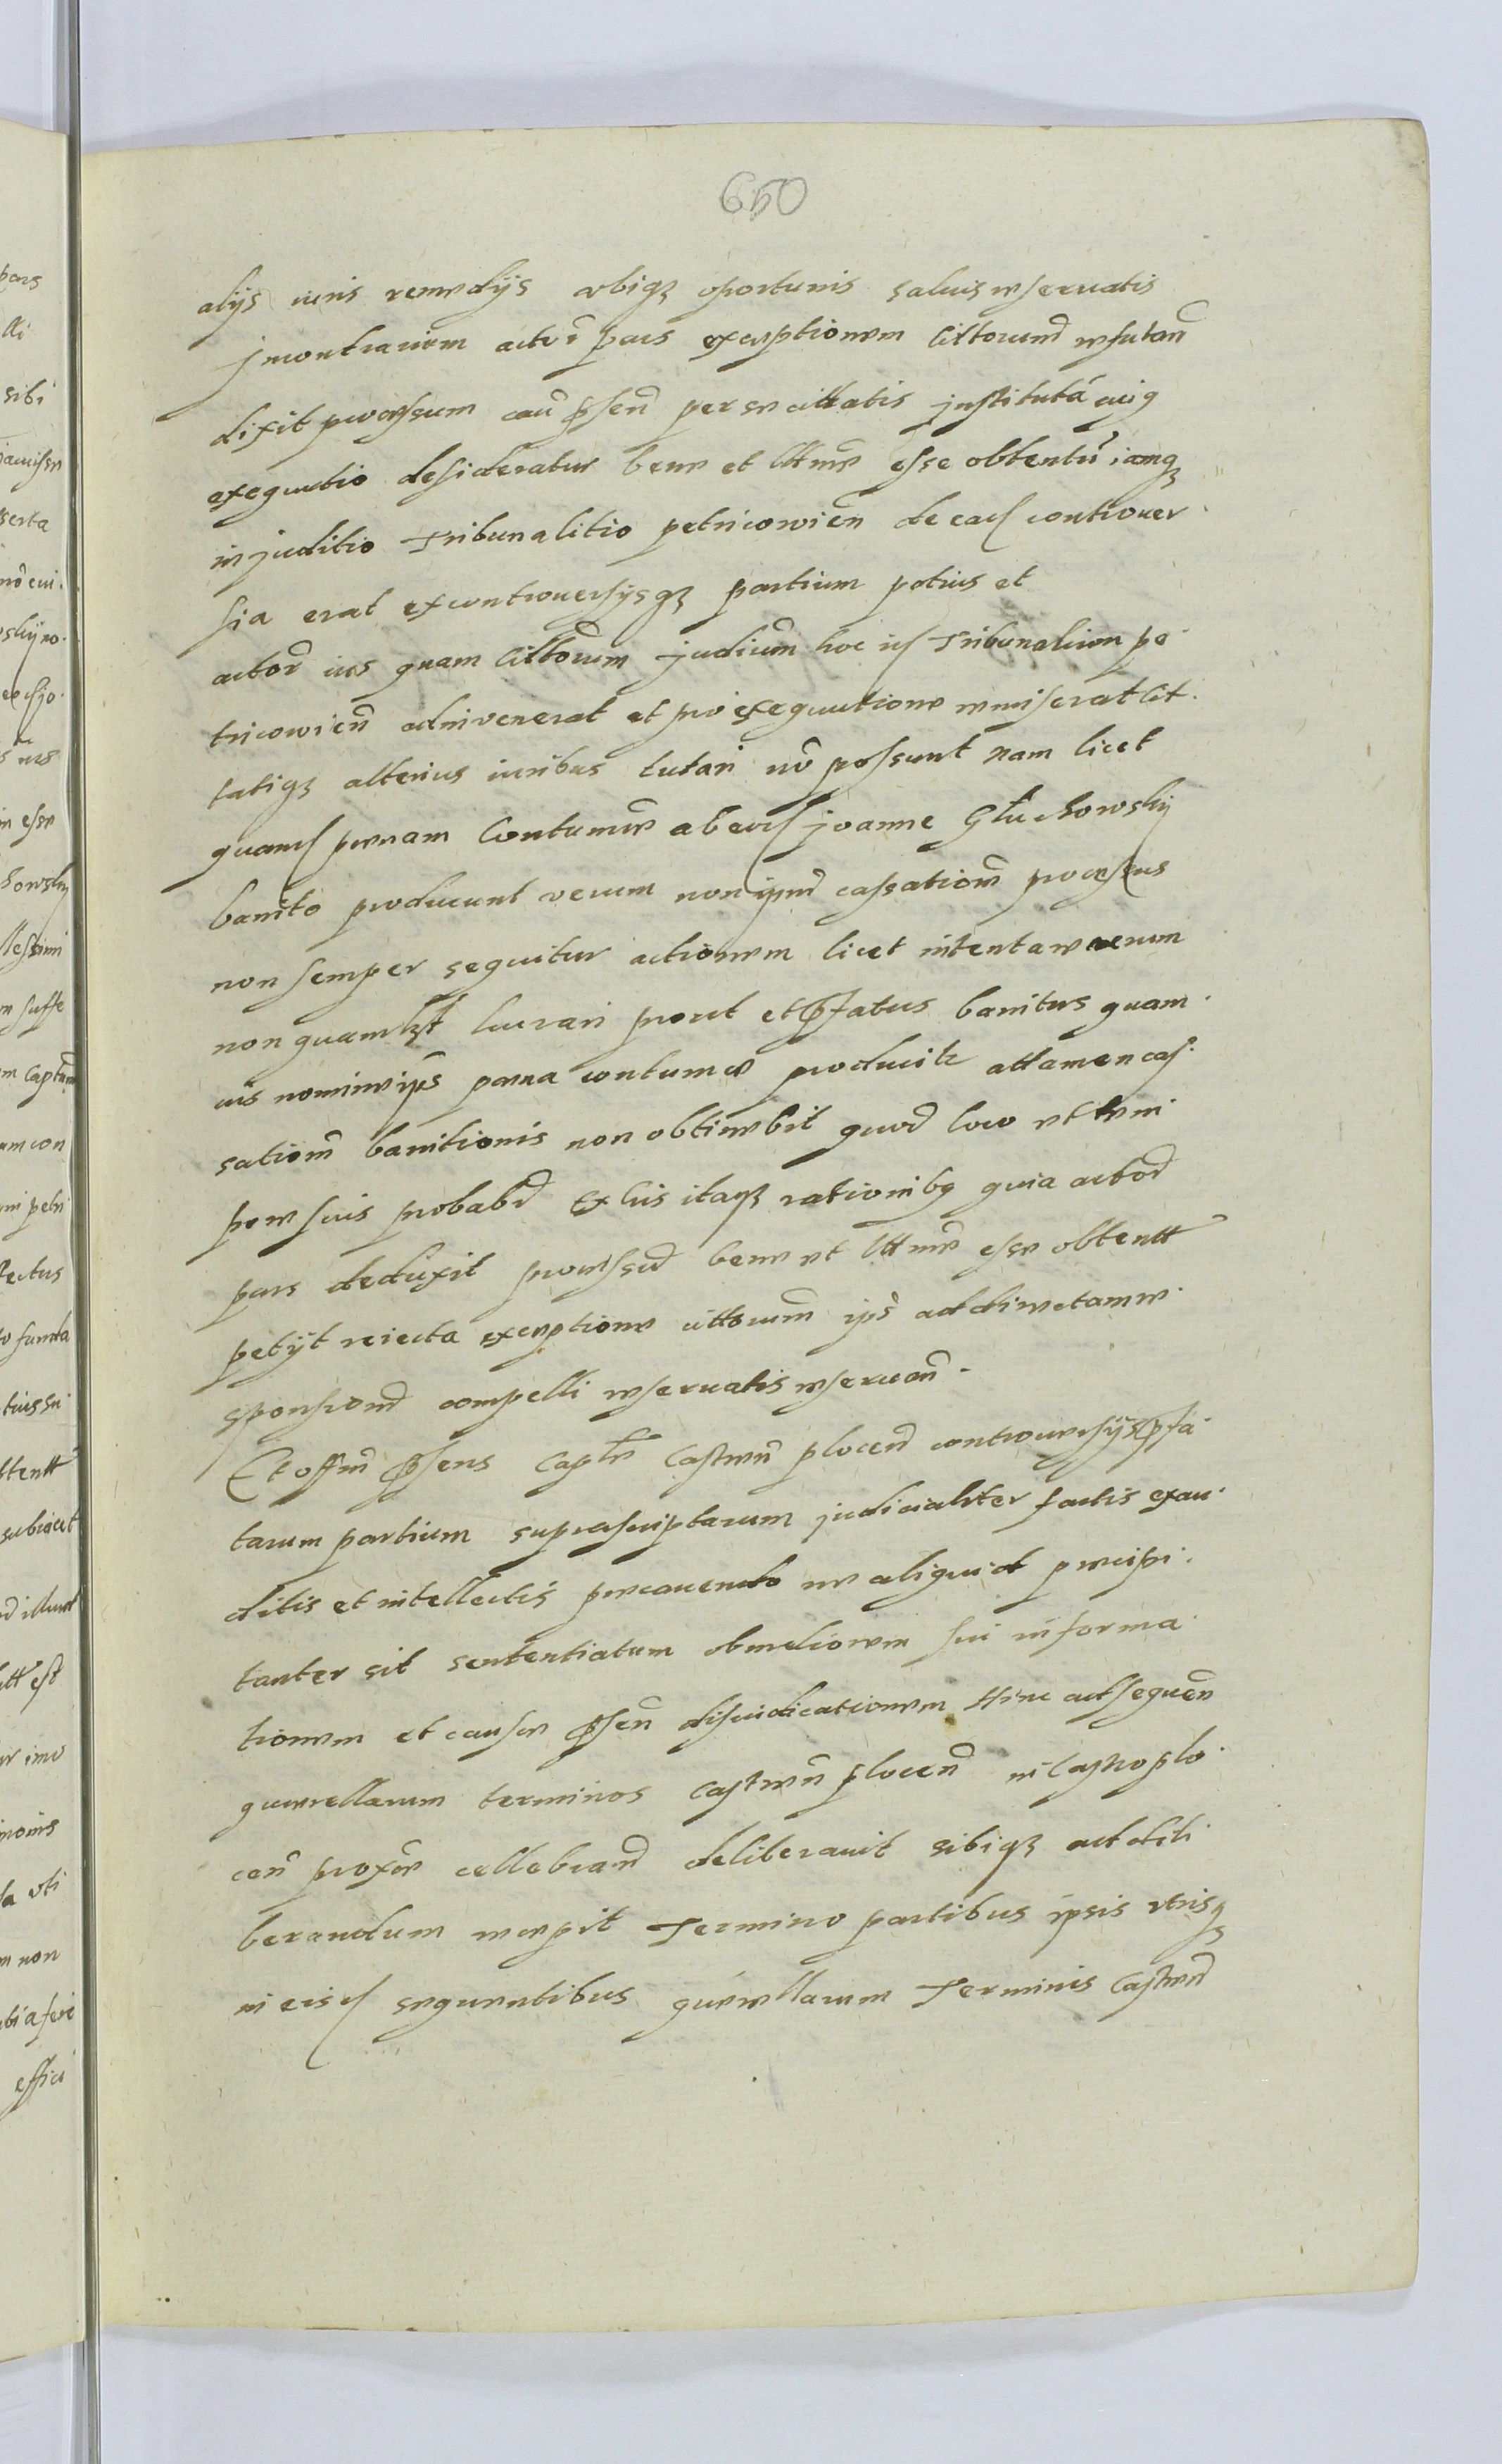 650
alijs iuris remedijs vbiqꝫ oportunis saluis reseruatis
Jncontrarium actor̃ pars exceptionem Cittorum̃ refutan̄
dixit processum cau̅ p̄sen̄ per se cittatis justituta̅ cuiꝗ
exequutio desideratur bene et lttme̅ esse obtentu̅ iamqꝫ
in juditio Tribunalitio petricowien̄ de ead controuer
sia erat ex controuersijsqꝫ partium potius et
actor̄ ius quam Cittorum̄ judium̄ hoc id Tribunalium pe
tricowien̄ adinvenerat et pro exequutione remiserat cit
tatiqꝫ alterius iuribus tutari no̅ possunt nam licet
quand penam Contumae̅ ab eod Joanne Głuchowskij
banito producunt verum non ipm̄ cassatiom̄ processus
non semper sequitur actionem licet intentare verum
non quamlꝫt lucrari prout et p̄fatus banitus quam
uis nomine ips̄ paena contumae producitr attamen cas
satiom̄ banitionis non obtinebit quod loco et tem
pore suis probabr̄ Ex his itaqꝫ rationibꝫ quia actor̄
pars deduxit processu̅ bene et lttme̅ esse obtentt
petijt reiecta exceptione cittorum̄ ips̄ ad directam re
sponsiom̄ compelli reseruatis reseruan̄
Et offm̄ p̄sens Capl̄e Castren̄ plocen̄ controuersijs p̄fa
tarum partium suprascriptarum judicialiter factis exau
ditis et intellectis precauendo ne aliquid precipi
tanter sit sententiatum ob meliorem sui informa
tionem et causae p̄sen̄ disiudicationem Hinc ad sequen̄
querellarum terminos castren̄ plocen̄ in Castro plo
cen̄ proxe̅ cellebran̄ deliberauit sibiqꝫ ad deli
berandum recepit Termino partibus ipsis vtrisqꝫ
in eisd sequentibus querellarum Terminis Castren̄